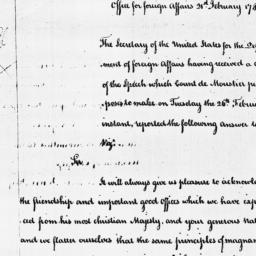 Office for foreign Affairs 21st February 178
The Secretary of the United States for the De
ment of foreign Affairs having received a c
of the Speech which Count de Moustier p
poses to make on Tuesday the 26th Febru
instant, reported the following answer to
Viz.
Sir
It will always give us pleasure to acknowle
the friendship and important good offices which we have exp
ced from his most christian Majesty, and your generous nat
and we flatter ourselves that the same principles of magnan